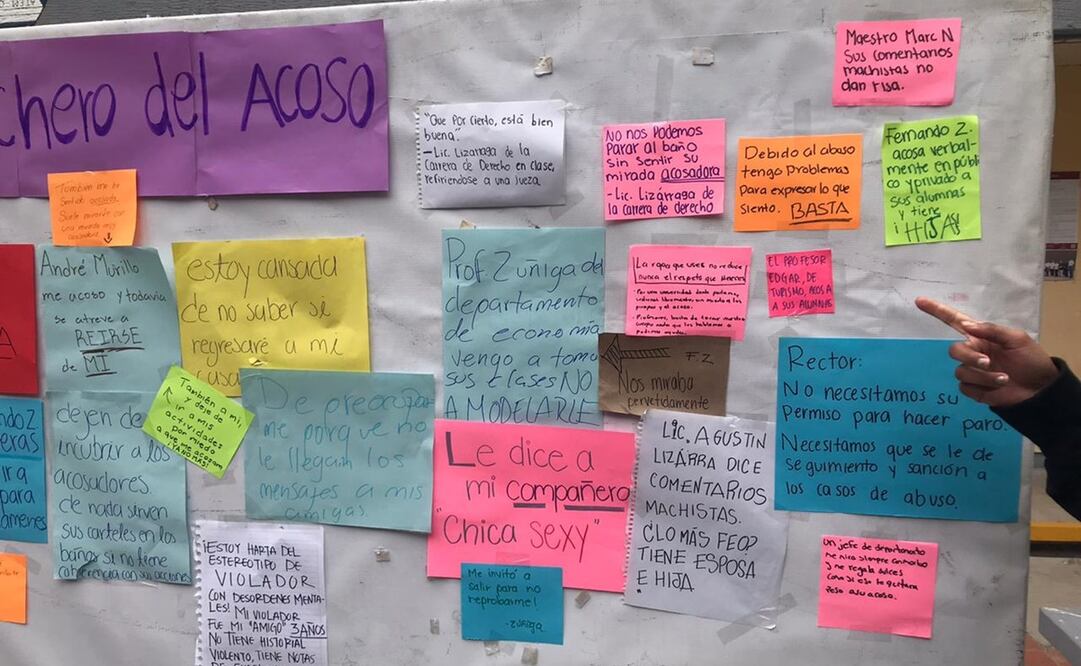 chero del ACOSO
También me he
sentido acosada
una mirada muy
André Murillo
me acoso y todavía
se atreve a
REIRSE
de MI
estoy cansada
de no saber si
regresaré a mi
casa
"Que por cierto, está bien
buena".
- Lic. Lizarraga de la
Carrera de Derecho en clase,
refiriendose a una jueza
No nos podemos
Parar al baño
sin sentir su
mirada acosadora
- Lic. Lizárraga de
la carrera de derecho
Debido al abuso
tengo Problemas
Para expresar lo que
siento. BASTA
Maestro Marc N
Sus comentarios
machistas no
dan risa.
Fernando Z.
acosa verbal-
mente en públi
co y privado a
sus alumnas
y tiene
¡HIJA!
Prof. Zúñiga del
departamento
de economía
vengo a toma
sus clases NO
A MODELARLE
La ropa que uses no reduce
nunca el respeto que mereces
EL PROFESOR
EDGAR, DE
TURISMO, ACOSA
A SUS ALUMNAS
F.Z
Nos miraba
pervetidamente
Rector:
No necesitamos su
Permiso para hacer paro.
Necesitamos que se le de
seguimiento y sanción a
los casos de abuso.
A
ndo Z
eras
ira
para
menes
dejen de
incubrir a los
acosadores.
de nada sirven
sus carteles en los
baños si no tiene
coherencia con sus acciones
También a mi,
y deje de
ir a mis
actividades
por miedo
a que me acosaran
¡YA NO MÁS!
De preocupar
me porque no
le llegam los
mensajes a mis
amigas
Le dice a
mi compañero
"Chica sexy"
LIC. AGUSTIN
LIZÁRRA DICE
COMENTARIOS
MACHISTAS.
¿LO MÁS FEO?
TIENE ESPOSA
E HIJA
¡ESTOY HARTA DEL
ESTEREOTIPO DE
VIOLADOR
CON DESORDENES MENTA-
LES! MI VIOLADOR
FUE MI "AMIGO" 3 AÑOS
NO TIENE HISTORIAL
VIOLENTO, TIENE NOTAS
Me invitó a
salir para no
reprobarme!
- ZUÑIGA
Un jefe de departamento
me mira siempre
y me regala dulces
como si eso le quitara
peso a su acoso.